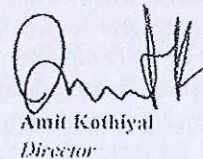 Amit Kothiyal
Director